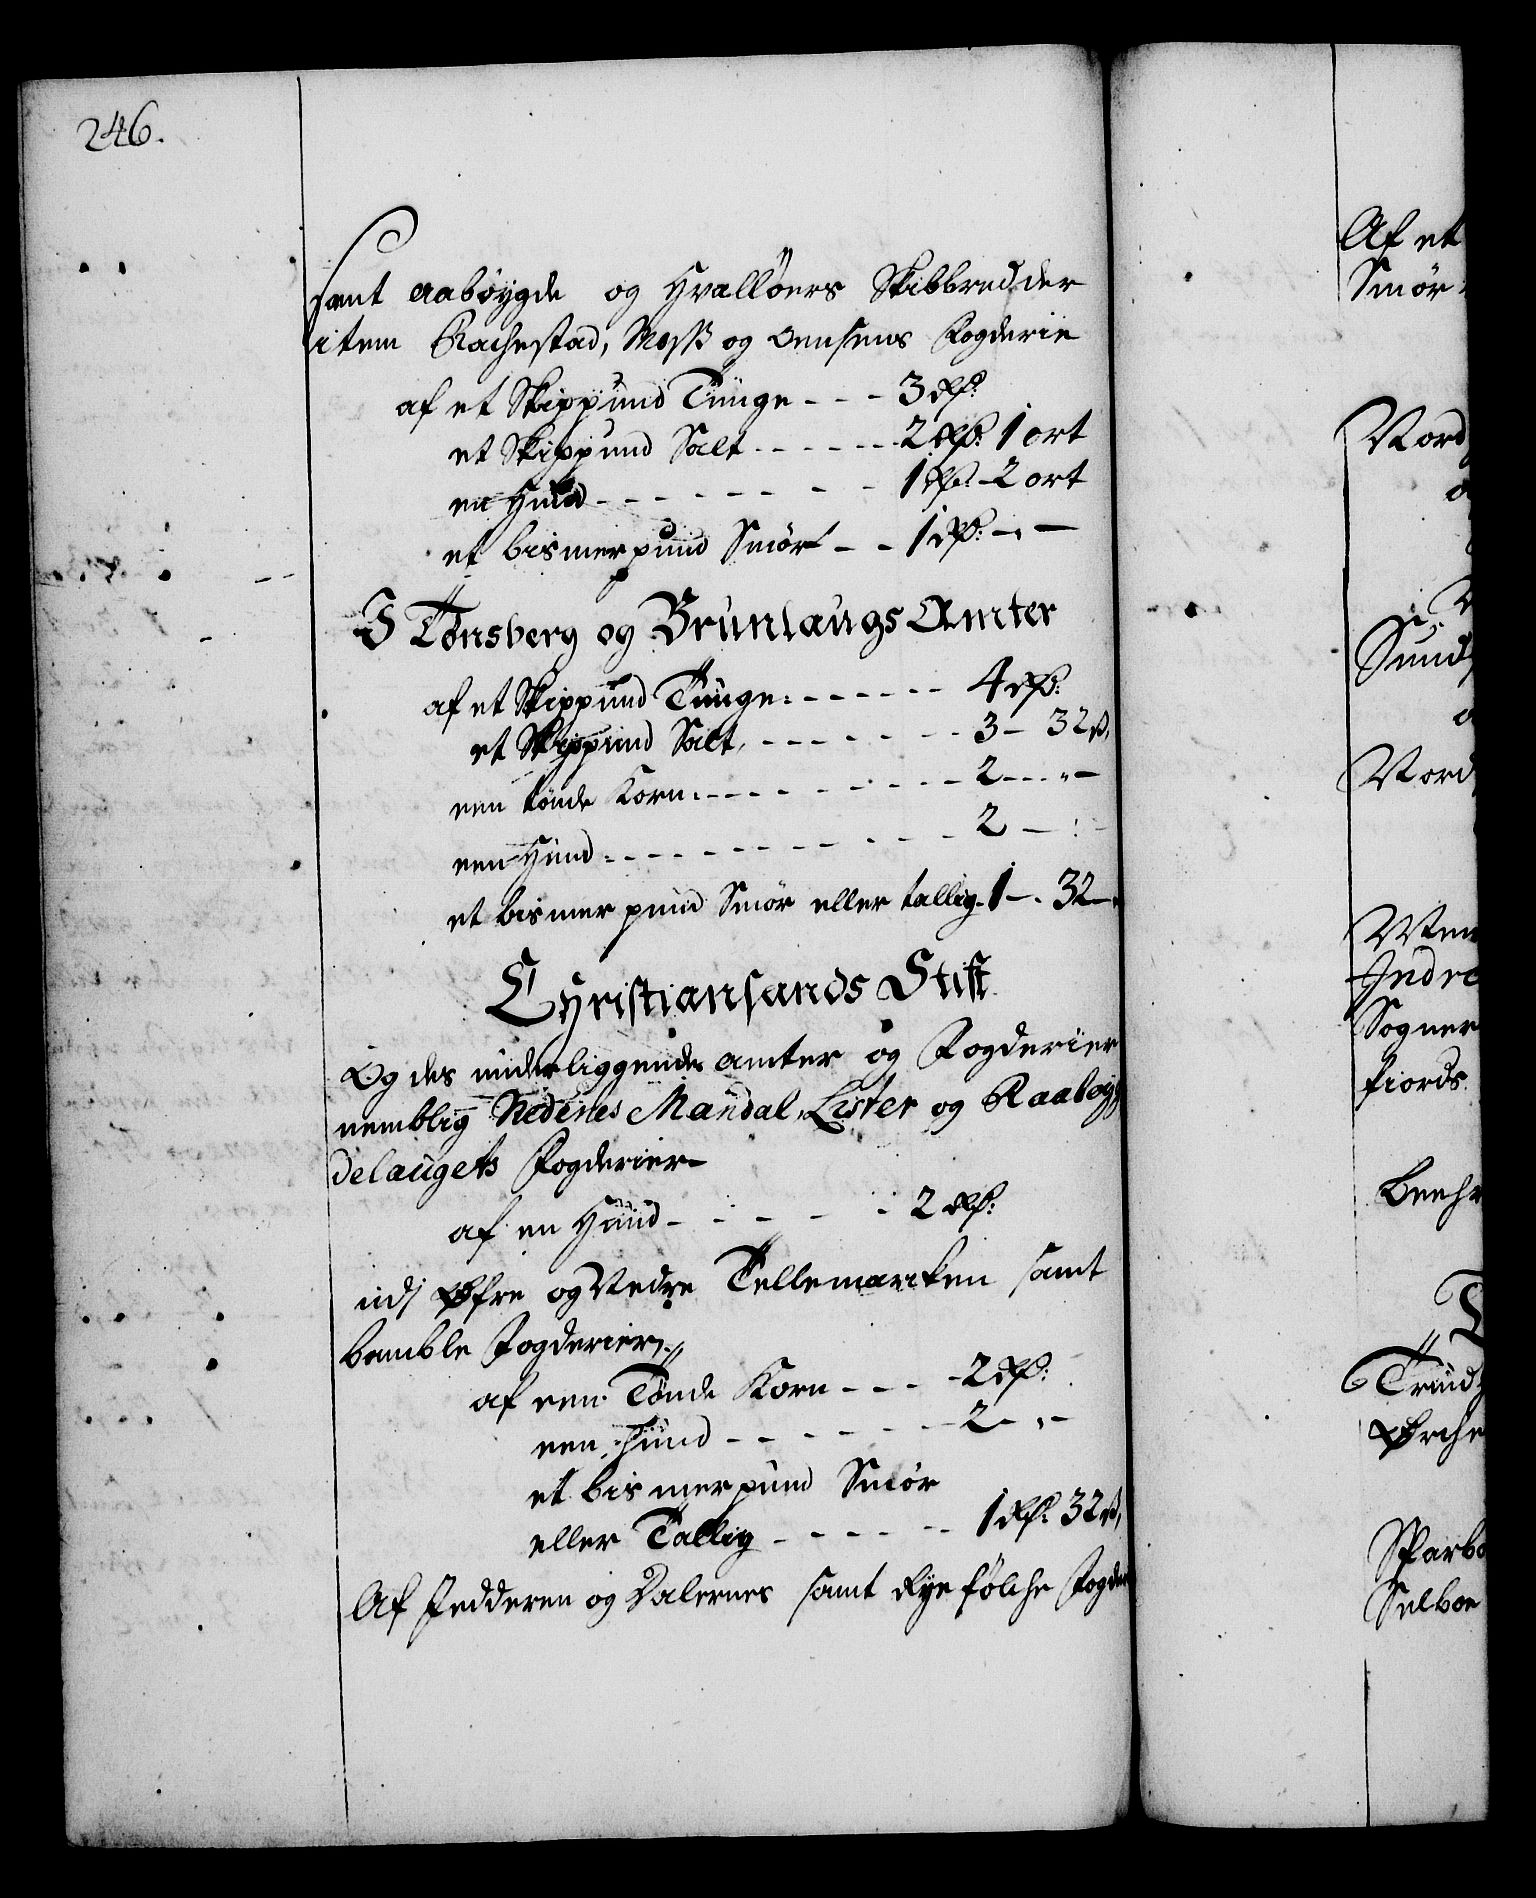 246.
samt Aabøygde og Hvalløers Skibbredder
item Rachestad, Moss og Onsøens Fogderie
af et Skippund Tunge - - - 3 rdr:
et Skippund Salt - - - - - - 2 rdr: 1 ort
en Hud - - - - - - - - 1 rdr: - 2 ort
et bismerpund Smør - - 1 rdr: - . -
I Tønsberg og Brunlaugs Amter
af et Skippund Tunge: - - - - - - 4 rdr:
et Skippund Salt, - - - - - - - 3 - 32 ß,
een tønde Korn. - - - - - - - - - 2 - - " -
een Hud - - - - - - - - - - - 2 - : -
et bismer pund Smør eller tallig - 1 - . 32 -
Christiansands Stift
Og des underliggende amter og Fogderier
nemblig Nedenes Mandal, Lister og Raabøyg
delaugets Fogderier
af en Hud - - - - - 2 rdr:
udj Øfre og Nedre Tellemarcken samt
bamble Fogderier
af een Tønde Korn - - - - 2 rdr:
een Hud - - - - - - - 2 - " -
et bismerpund Smør
eller Tallig - - - - - - 1 rdr: 32 ß,
Af Jedderen og Dalernes samt Ryefølche Fogde
Af et
Smør
Nord
Sund
Nord
Indre
Sogner
fiords
Ørche
Sparbo
Selboe